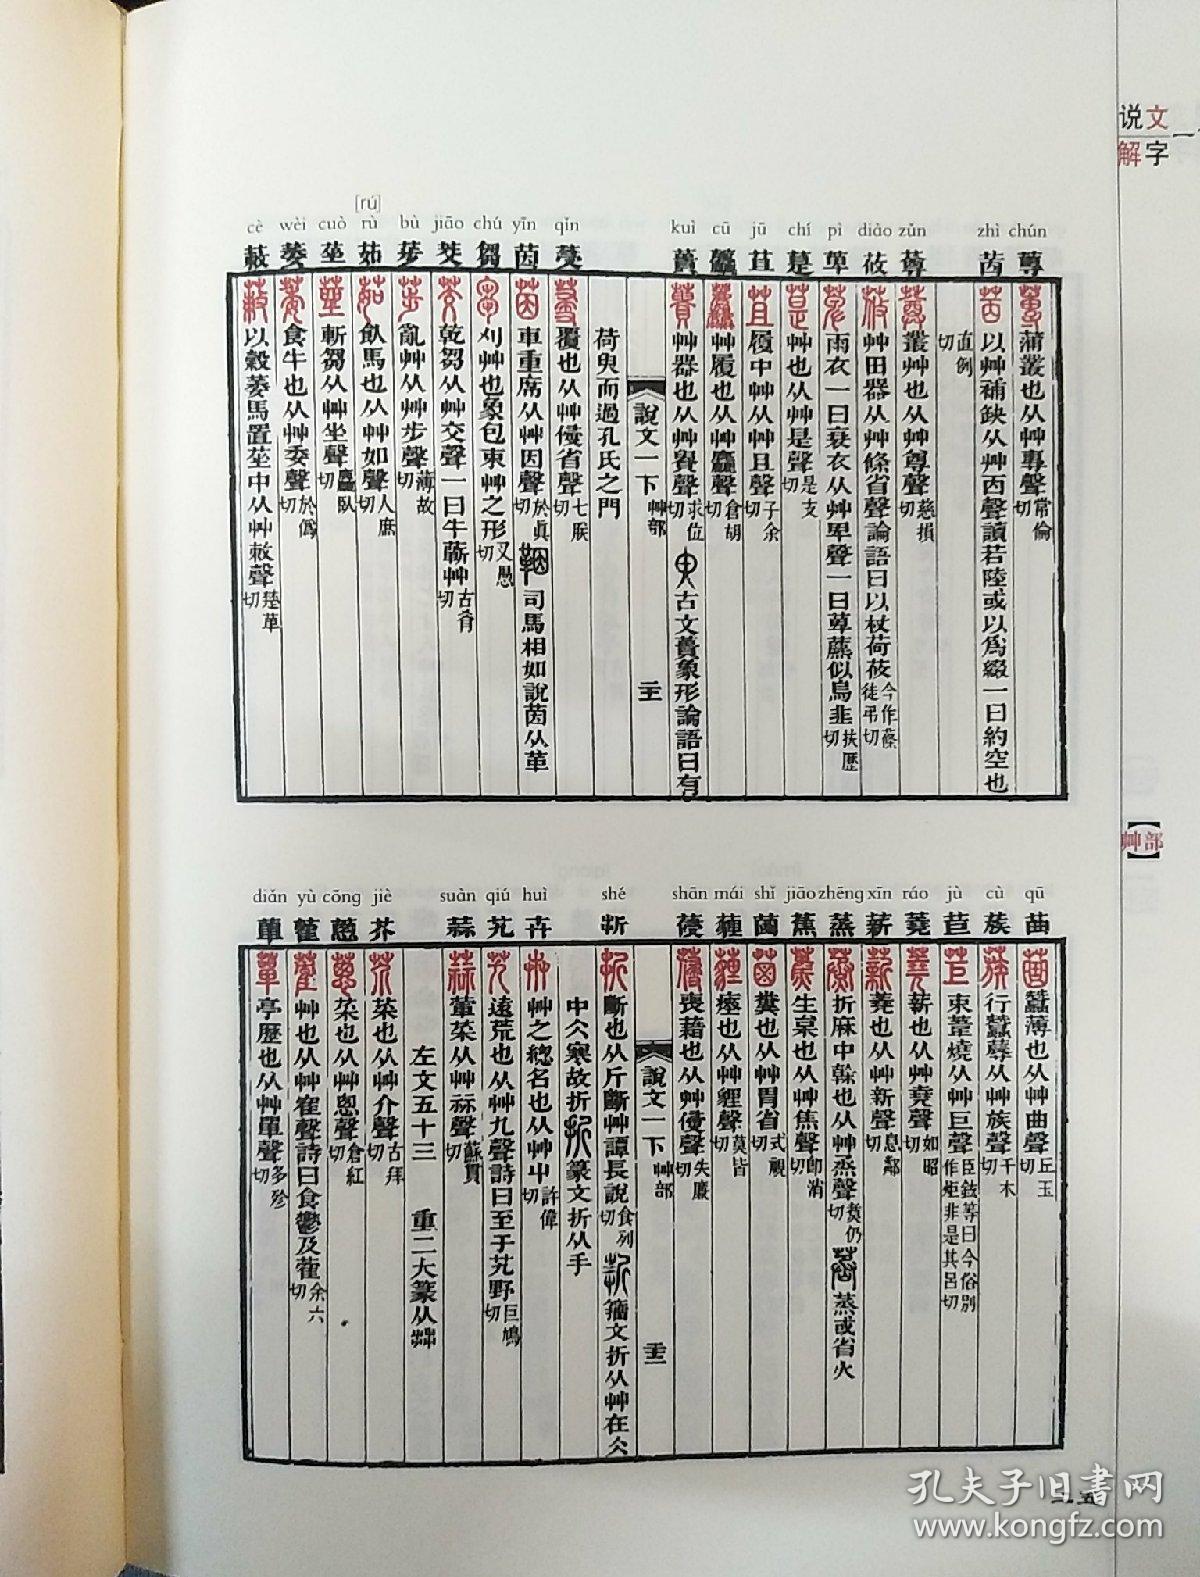 说文
解字
一
【艸部】
chún zhì zǔn diào pì chí jū cū kuì qǐn yīn chú jiāo bù rù [rú] cuò wèi cè
蓴 茜 蕈 莜 萆 䓳 苴 麤 蕢 葠 茵 芻 茭 荹 茹 莝 萎 敕
蒲叢也从艸專聲常倫切
以艸補缺从艸西聲讀若陸或以爲綴一曰約空也
直例切
叢艸也从艸尊聲慈損切
艸田器从艸條省聲論語曰以杖荷莜今作蓧徒弔切
雨衣一曰衰衣从艸卑聲一曰萆藨似烏韭扶歷切
艸也从艸是聲是支切
履中艸从艸且聲子余切
艸履也从艸麤聲倉胡切
艸器也从艸貴聲求位切 古文蕢象形論語曰有
說文一下 艸部 二十二
荷臾而過孔氏之門
覆也从艸侵省聲七朕切
車重席从艸因聲於眞切 司馬相如說茵从革
刈艸也象包束艸之形叉愚切
乾芻从艸交聲一曰牛蘄艸古肴切
亂艸从艸步聲薄故切
飲馬也从艸如聲人庶切
斬芻从艸坐聲麤臥切
食牛也从艸委聲於僞切
以穀萎馬置莝中从艸敕聲楚革切
qū cù jù ráo xīn zhēng jiāo shǐ mái shān shé huì qiú suàn jiè cōng yù diǎn
苖 蔟 苣 蕘 薪 蒸 蕉 䓌 薶 葠 折 卉 艽 蒜 芥 蔥 蒮 蕇
蠶薄也从艸曲聲丘玉切
行蠶蓐从艸族聲千木切
束葦燒从艸巨聲臣鉉等曰今俗別作炬非是其呂切
薪也从艸堯聲如昭切
蕘也从艸新聲息鄰切
折麻中榦也从艸烝聲煑仍切 蒸或省火
生枲也从艸焦聲卽消切
糞也从艸胃省式視切
瘞也从艸貍聲莫皆切
喪藉也从艸侵聲失廉切
說文一下 艸部 二十三
斷也从斤斷艸譚長說食列切 籀文折从艸在仌
中仌寒故折 篆文折从手
艸之總名也从艸屮許偉切
遠荒也从艸九聲詩曰至于艽野巨鳩切
葷菜从艸祘聲蘇貫切
左文五十三 重二大篆从茻
菜也从艸介聲古拜切
菜也从艸悤聲倉紅切
艸也从艸隺聲詩曰食鬱及蒮余六切
亭歷也从艸單聲多殄切
二五
孔夫子旧书网
www.kongfz.com